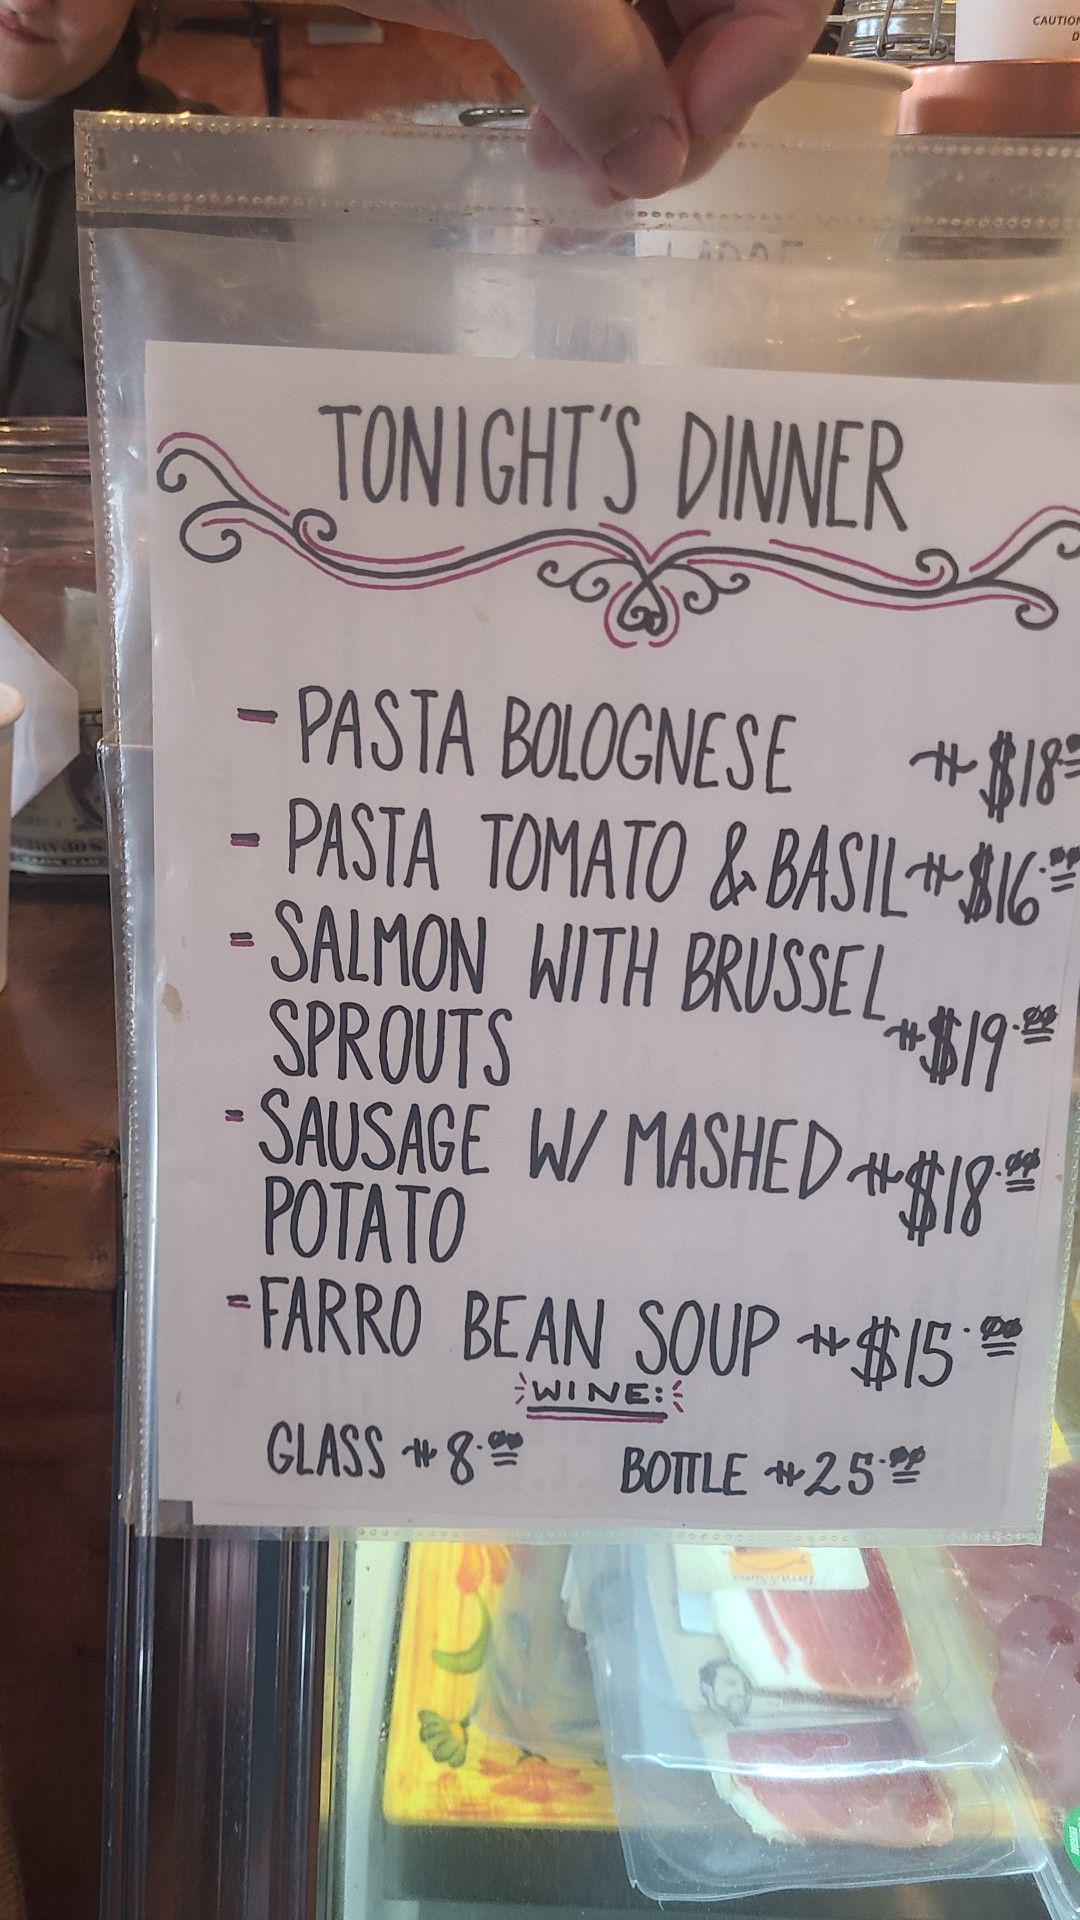 CAUTION
TONIGHT'S DINNER
- PASTA BOLOGNESE $18
- PASTA TOMATO & BASIL $16.00
- SALMON WITH BRUSSEL
SPROUTS $19.00
- SAUSAGE W/ MASHED $18.00
POTATO
- FARRO BEAN SOUP $15.00
WINE:
GLASS 8.00 BOTTLE 25.00